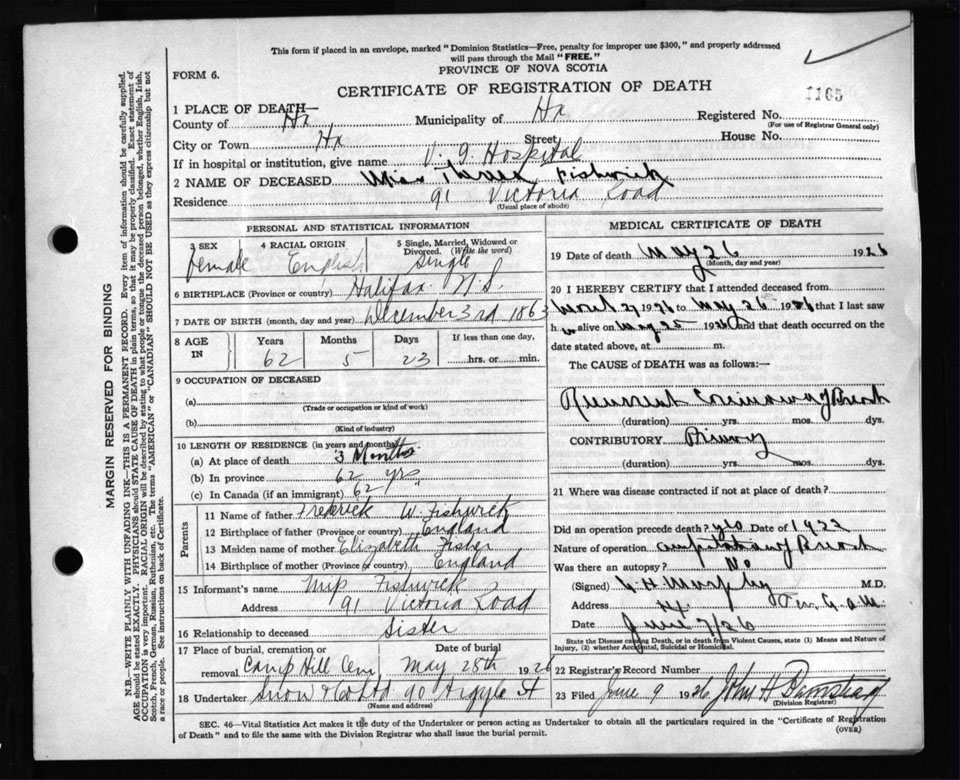 This form if placed in an envelope, marked "Dominion Statistics—Free, penalty for improper use $300," and properly addressed
will pass through the Mail "FREE."
PROVINCE OF NOVA SCOTIA
FORM 6.
CERTIFICATE OF REGISTRATION OF DEATH
1165
1 PLACE OF DEATH—
County of Hx Municipality of Hx Registered No.
(For use of Registrar General only)
City or Town Hx Street House No.
If in hospital or institution, give name V. G. Hospital
2 NAME OF DECEASED Miss Fishwick
Residence 91 Victoria Road
(Usual place of abode)
PERSONAL AND STATISTICAL INFORMATION
3 SEX 4 RACIAL ORIGIN 5 Single, Married, Widowed or
Divorced. (Write the word)
Female English Single
6 BIRTHPLACE (Province or country) Halifax N.S.
7 DATE OF BIRTH (month, day and year) December 3rd 1863
8 AGE IN Years Months Days If less than one day,
62 5 23 hrs. or min.
9 OCCUPATION OF DECEASED
(a)
(Trade or occupation or kind of work)
(b)
(Kind of industry)
10 LENGTH OF RESIDENCE (in years and months)
(a) At place of death 3 Months
(b) In province 62 yrs
(c) In Canada (if an immigrant) 62 "
Parents
11 Name of father Frederick W. Fishwick
12 Birthplace of father (Province or country) England
13 Maiden name of mother Elizabeth Fisher
14 Birthplace of mother (Province or country) England
15 Informant's name Miss Fishwick
Address 91 Victoria Road
16 Relationship to deceased Sister
17 Place of burial, cremation or Date of burial
removal Camp Hill Cem May 28th 1926
18 Undertaker Snow & Co Ltd 90 Argyle St
(Name and address)
MEDICAL CERTIFICATE OF DEATH
19 Date of death May 26 1926
(Month, day and year)
20 I HEREBY CERTIFY that I attended deceased from
1926 to May 26 1926 that I last saw
h er alive on May 25 1926 and that death occurred on the
date stated above, at m.
The CAUSE OF DEATH was as follows:—
Recurrent Carcinoma of Breast
(duration) yrs. mos. dys.
CONTRIBUTORY Primary
(duration) yrs. mos. dys.
21 Where was disease contracted if not at place of death?
Did an operation precede death? yes Date of 1923
Nature of operation amputation of Breast
Was there an autopsy? No
(Signed) Murphy M.D.
Address Hx
Date June 7/26
State the Disease causing Death, or in death from Violent Causes, state (1) Means and Nature of
Injury, (2) whether Accidental, Suicidal or Homicidal.
22 Registrar's Record Number
23 Filed June 9 1926 John H
(Division Registrar)
SEC. 46—Vital Statistics Act makes it the duty of the Undertaker or person acting as Undertaker to obtain all the particulars required in the "Certificate of Registration
of Death" and to file the same with the Division Registrar who shall issue the burial permit.
(OVER)
MARGIN RESERVED FOR BINDING
N.B.—WRITE PLAINLY WITH UNFADING INK—THIS IS A PERMANENT RECORD. Every item of information should be carefully supplied.
AGE should be stated EXACTLY. PHYSICIANS should STATE CAUSE OF DEATH in plain terms, so that it may be properly classified. Exact statement of
OCCUPATION is very important. RACIAL ORIGIN will be described by stating to what people or tongue the deceased person belonged, whether English, Irish,
Scotch, French, German, Russian, Ruthenian, etc. The terms "AMERICAN" or "CANADIAN" SHOULD NOT BE USED as they express citizenship but not
a race or people. See instructions on back of Certificate.